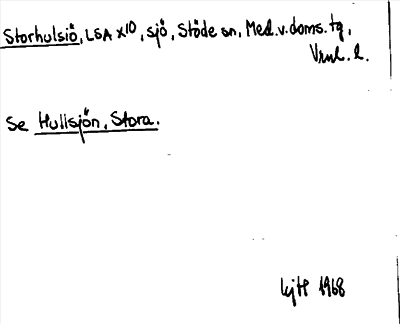 Storhulsiö, LSA X10, sjö, Stöde sn, Med.v.doms.tg,
Vml. l.
Se Hullsjön, Stora.
1968